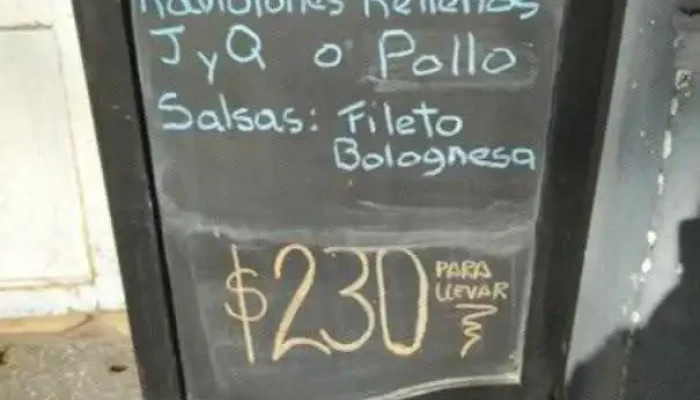 Raviolones Rellenos
J y Q o Pollo
Salsas: Fileto
Bolognesa
$230 PARA
LLEVAR